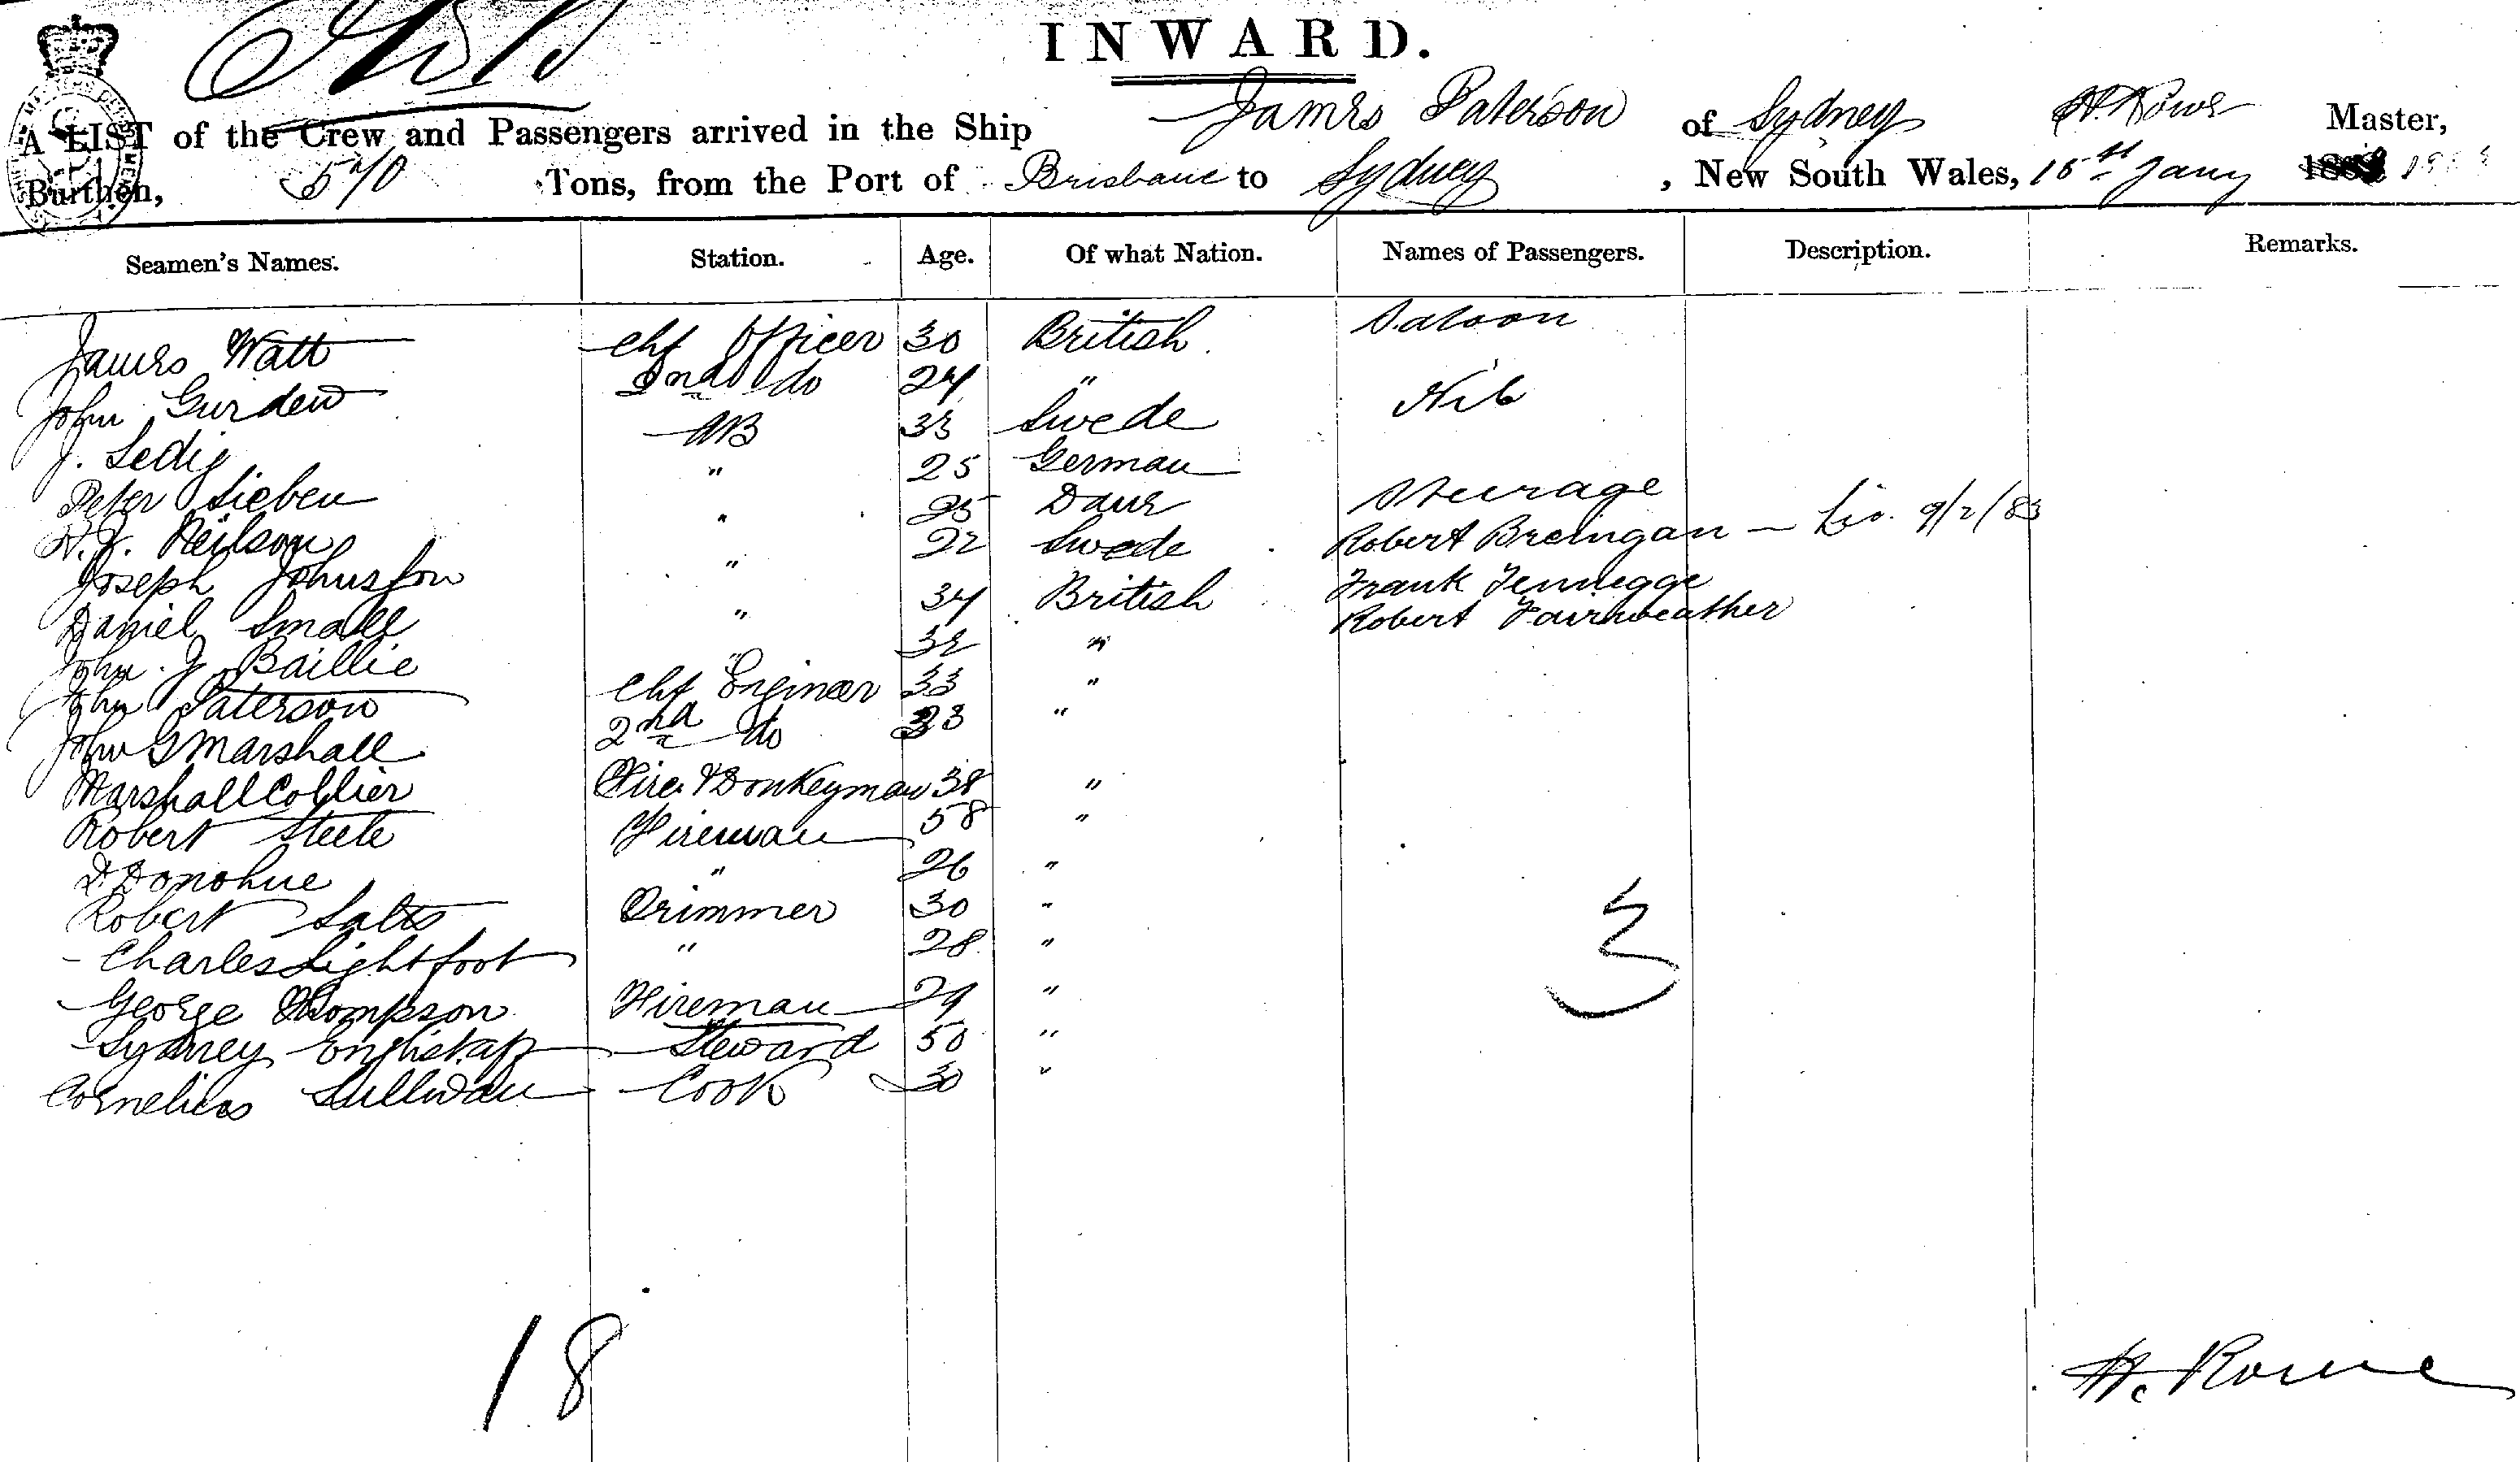 INWARD.
A LIST of the Crew and Passengers arrived in the Ship James Paterson of Sydney H. Rowe Master,
Burthen, 570 Tons, from the Port of Brisbane to Sydney, New South Wales, 15th Jany
Seamen's Names. Station. Age. Of what Nation. Names of Passengers. Description. Remarks.
James Watt Chf Officer 30 British Saloon
John Gurdew 2nd do 24 " Nil
J. Ledig AB 33 Swede
Peter Sieben " 25 German
H.J. Neilson " 25 Dane Steerage
Joseph Johnston " 22 Swede Robert Breingan — Liv. 9/2/83
Daniel Small " 34 British Frank Jennegge
John J. Baillie " 32 " Robert Fairweather
John Paterson Chf Engineer 33 "
John G Marshall 2nd do 33 "
Marshall Collier Fire & Donkeyman 38 "
Robert Steele Fireman 58 "
D. Donohue " 26 "
Robert Salts Trimmer 30 "
Charles Lightfoot " 28 "
George Thompson Fireman 29 "
Sydney Steward 50 "
Cornelius Sullivan Cook 30 "
3
18
H. Rowe